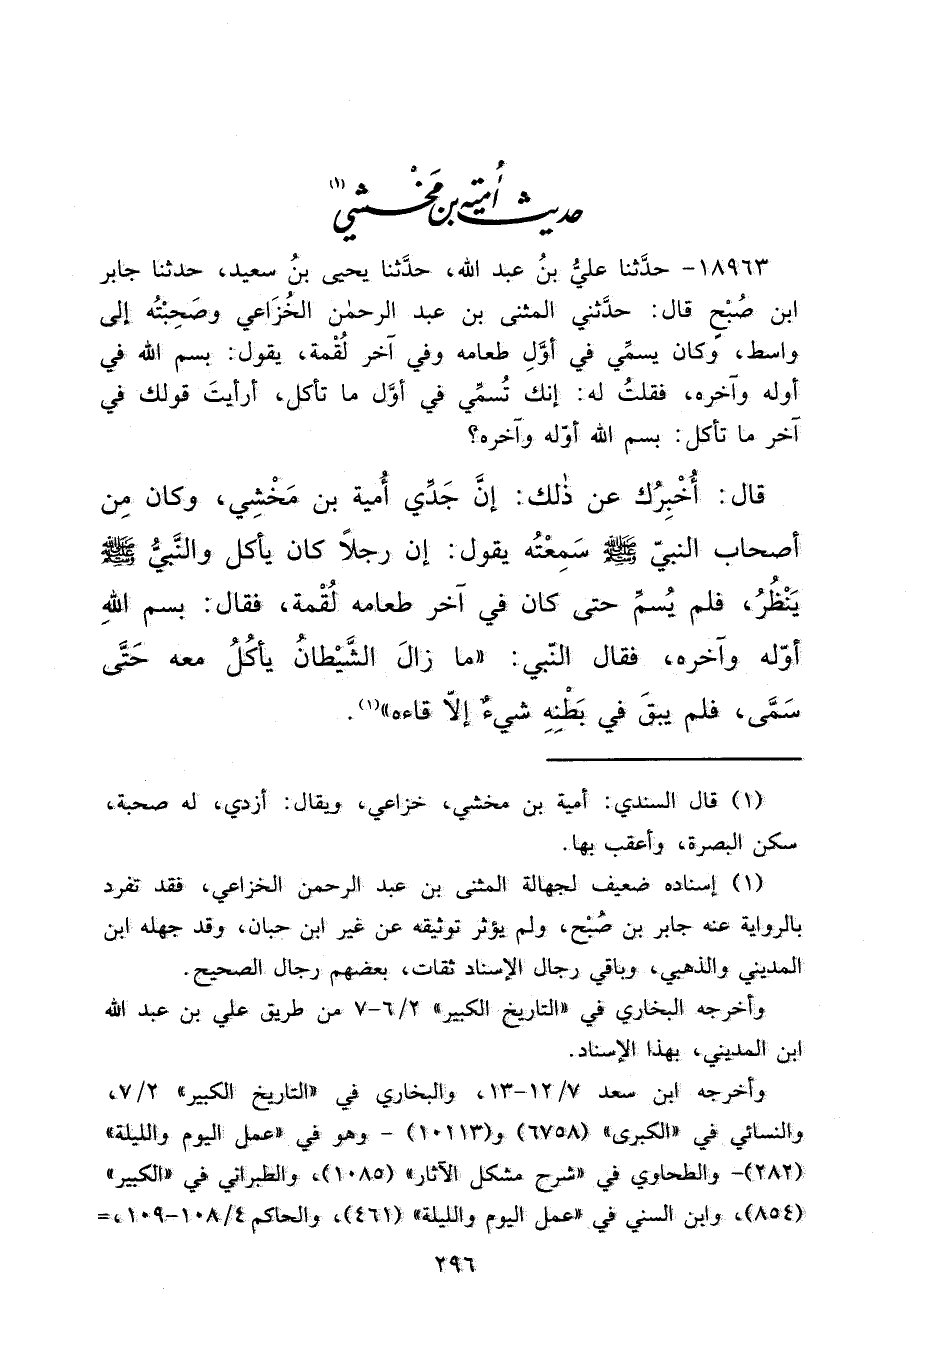 حديث أُميَّة بن مَخْشي(١)
١٨٩٦٣- حدَّثنا عليُّ بنُ عبد الله، حدَّثنا يحيى بنُ سعيد، حدثنا جابر
ابن صُبْحٍ قال: حدَّثني المثنى بن عبد الرحمٰن الخُزَاعي وصَحِبْتُه إلى
واسط، وكان يسمِّي في أوَّلِ طعامه وفي آخر لُقْمة، يقول: بسم الله في
أوله وآخره، فقلتُ له: إنك تُسمِّي في أوَّل ما تأكل، أرأيتَ قولك في
آخر ما تأكل: بسم الله أوّله وآخره؟
قال: أُخْبِرُك عن ذٰلك: إنَّ جَدِّي أُمية بن مَخْشِي، وكان مِن
أصحاب النبيّ ﷺ سَمِعْتُه يقول: إن رجلاً كان يأكل والنَّبيُّ ﷺ
يَنْظُرُ، فلم يُسمِّ حتى كان في آخر طعامه لُقْمة، فقال: بسم اللهِ
أوّله وآخره، فقال النّبي: «ما زالَ الشَّيْطانُ يأكُلُ معه حَتَّى
سَمَّى، فلم يبقَ في بَطْنِهِ شيءٌ إلاّ قاءه»(١).
(١) قال السندي: أمية بن مخشي، خزاعي، ويقال: أزدي، له صحبة،
سكن البصرة، وأعقب بها.
(١) إسناده ضعيف لجهالة المثنى بن عبد الرحمن الخزاعي، فقد تفرد
بالرواية عنه جابر بن صُبْح، ولم يؤثر توثيقه عن غير ابن حبان، وقد جهله ابن
المديني والذهبي، وباقي رجال الإسناد ثقات، بعضهم رجال الصحيح.
وأخرجه البخاري في «التاريخ الكبير» ٦/٢-٧ من طريق علي بن عبد الله
ابن المديني، بهذا الإسناد.
وأخرجه ابن سعد ١٢/٧-١٣، والبخاري في «التاريخ الكبير» ٧/٢،
والنسائي في «الكبرى» (٦٧٥٨) و(١٠١١٣) - وهو في «عمل اليوم والليلة»
(٢٨٢)- والطحاوي في «شرح مشكل الآثار» (١٠٨٥)، والطبراني في «الكبير»
(٨٥٤)، وابن السني في «عمل اليوم والليلة» (٤٦١)، والحاكم ١٠٨/٤-١٠٩،=
٢٩٦